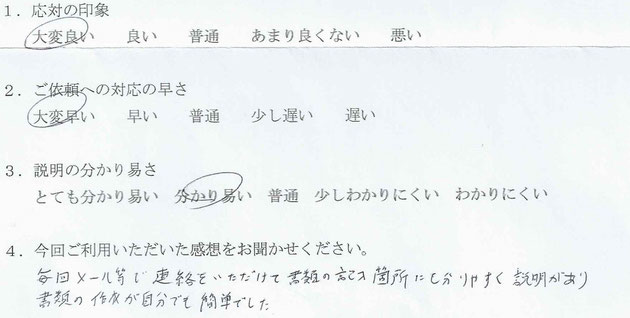 1．応対の印象
大変良い　良い　普通　あまり良くない　悪い
2．ご依頼への対応の早さ
大変早い　早い　普通　少し遅い　遅い
3．説明の分かり易さ
とても分かり易い　分かり易い　普通　少しわかりにくい　わかりにくい
4．今回ご利用いただいた感想をお聞かせください。
毎回メール等で連絡をいただけて書類の記入箇所にも分りやすく説明があり
書類の作成が自分でも簡単でした